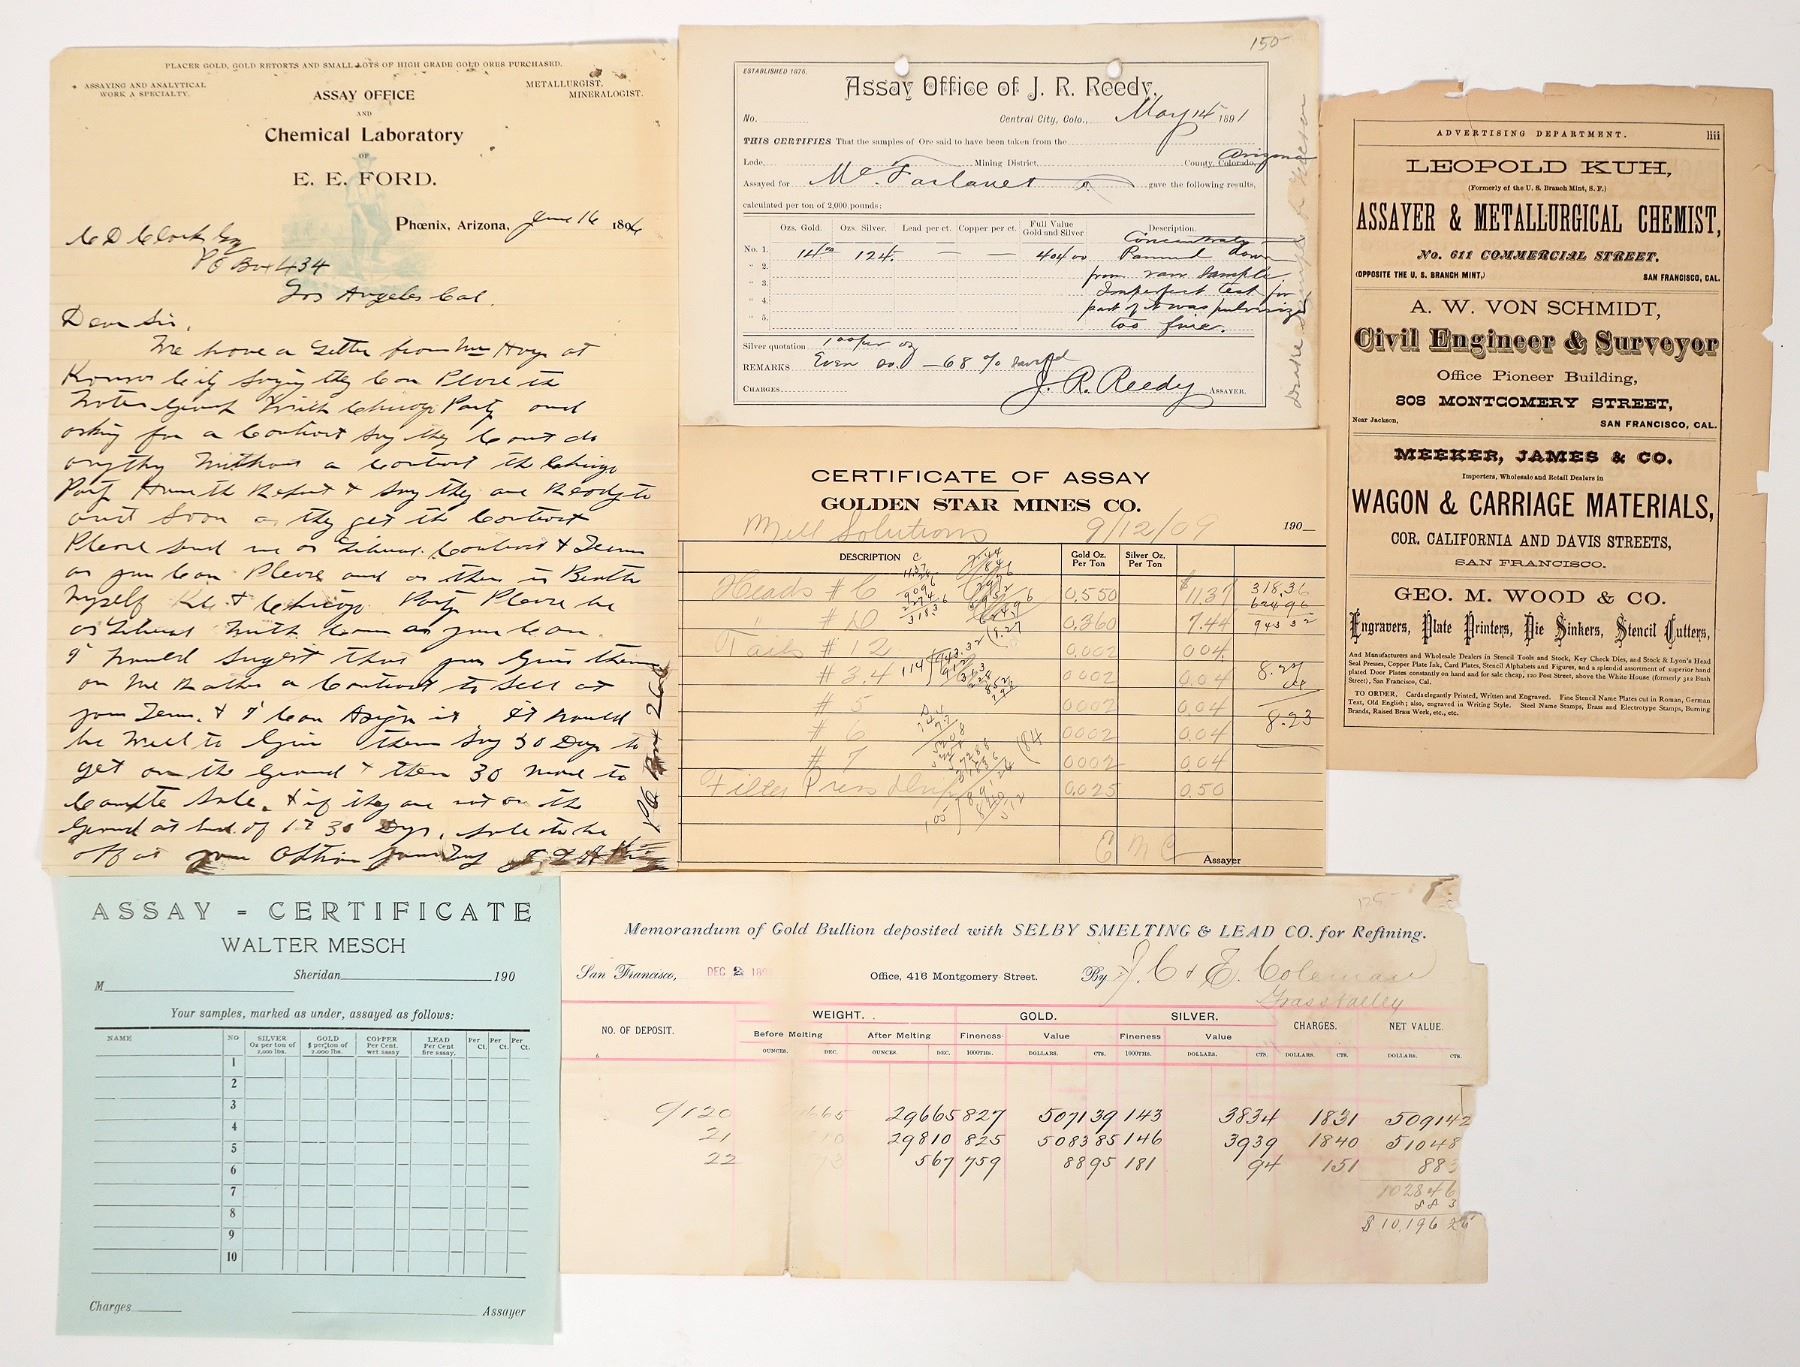 PLACER GOLD, GOLD RETORTS AND SMALL LOTS OF HIGH GRADE GOLD ORES PURCHASED.
ASSAYING AND ANALYTICAL
WORK A SPECIALTY.
METALLURGIST,
MINERALOGIST.
ASSAY OFFICE
AND
Chemical Laboratory
OF
E. E. FORD.
Phœnix, Arizona, June 16 1896
PO Box 434
Los Angeles Cal.
Dear Sir,
We have a Letter from Mr Hays at
Kansas City saying they Can Place the
with Chicago Party and
asking for a Contract say they Cant do
anything without a Contract the Chicago
Party Have the Report & say they are Ready to
soon as they get the Contract
Please send me as Liberal Contract & Terms
as you Can Please and as there is Besides
myself & Chicago Party Please be
as Liberal with Com as you Can.
I would suggest that you Give them
or me Rather a Contract to sell at
your Terms & I Can Assign it. It would
be well to Give them say 30 Days to
get on the Ground & then 30 more to
Complete sale. & if they are not on the
Ground at End of 1st 30 Days, sale to be
off at your Option
PO Box 266
150-
ESTABLISHED 1876.
Assay Office of J. R. Reedy.
No.
Central City, Colo., May 14 1891
THIS CERTIFIES That the samples of Ore said to have been taken from the
Lode, Mining District, County, Colorado, Arizona
Assayed for McFarlane gave the following results,
calculated per ton of 2,000 pounds:
Ozs. Gold. Ozs. Silver. Lead per ct. Copper per ct. Full Value Gold and Silver Description.
No. 1. 14 oz 124. — — 404 00 Concentrates
" 2. Panned down
from raw sample
" 3. Imperfect test for
" 4. part of it was pulverized
" 5. too fine.
Silver quotation 1 00 per oz
REMARKS — 68 % saved
CHARGES J. R. Reedy ASSAYER.
CERTIFICATE OF ASSAY
GOLDEN STAR MINES CO.
Mill Solutions 9/12/09 190
DESCRIPTION Gold Oz. Per Ton Silver Oz. Per Ton
Heads # 6 0.550 $11.37 318.36
# 10 0.360 7.44 624.96
943 32
Tails # 2 0.002 0.04
# 3.4 0002 0.04 8.27
04
# 5 0002 0.04
8.23
# 6 0002 0.04
# 7 0002 0.04
Filter Press 0.025 0.50
Assayer
ADVERTISING DEPARTMENT. liii
LEOPOLD KUH,
(Formerly of the U. S. Branch Mint, S. F.)
ASSAYER & METALLURGICAL CHEMIST,
No. 611 COMMERCIAL STREET.
(OPPOSITE THE U. S. BRANCH MINT,) SAN FRANCISCO, CAL.
A. W. VON SCHMIDT,
Civil Engineer & Surveyor
Office Pioneer Building,
808 MONTGOMERY STREET,
Near Jackson, SAN FRANCISCO, CAL.
MEEKER, JAMES & CO.
Importers, Wholesale and Retail Dealers in
WAGON & CARRIAGE MATERIALS,
COR. CALIFORNIA AND DAVIS STREETS,
SAN FRANCISCO.
GEO. M. WOOD & CO.
Engravers, Plate Printers, Die Sinkers, Stencil Cutters,
And Manufacturers and Wholesale Dealers in Stencil Tools and Stock, Key Check Dies, and Stock & Lyon's Head
Seal Presses, Copper Plate Ink, Card Plates, Stencil Alphabets and Figures, and a splendid assortment of superior hand
plated Door Plates constantly on hand and for sale cheap, 120 Post Street, above the White House (formerly 312 Bush
Street), San Francisco, Cal.
TO ORDER, Cards elegantly Printed, Written and Engraved. Fine Stencil Name Plates cut in Roman, German
Text, Old English; also, engraved in Writing Style. Steel Name Stamps, Brass and Electrotype Stamps, Burning
Brands, Raised Brass Work, etc., etc.
ASSAY - CERTIFICATE
WALTER MESCH
M Sheridan 190
Your samples, marked as under, assayed as follows:
NAME NO SILVER Oz per ton of 2,000 lbs. GOLD $ per ton of 2,000 lbs. COPPER Per Cent. wet assay LEAD Per Cent fire assay. Per Ct. Per Ct. Per Ct.
1
2
3
4
5
6
7
8
9
10
Charges Assayer
125-
Memorandum of Gold Bullion deposited with SELBY SMELTING & LEAD CO. for Refining.
San Francisco, DEC 2 189 Office, 416 Montgomery Street. By J. C & E. Coleman
Grass Valley
NO. OF DEPOSIT. WEIGHT. GOLD. SILVER. CHARGES. NET VALUE.
Before Melting After Melting Fineness Value Fineness Value
OUNCES. DEC. OUNCES. DEC. 1000THS. DOLLARS. CTS. 1000THS. DOLLARS. CTS. DOLLARS. CTS. DOLLARS. CTS.
9120 29665 827 507139 143 3834 1831 509142
21 29810 825 508385 146 3939 1840 51048
22 567 759 8895 181 94 151 883
102846
883
$10,196 26